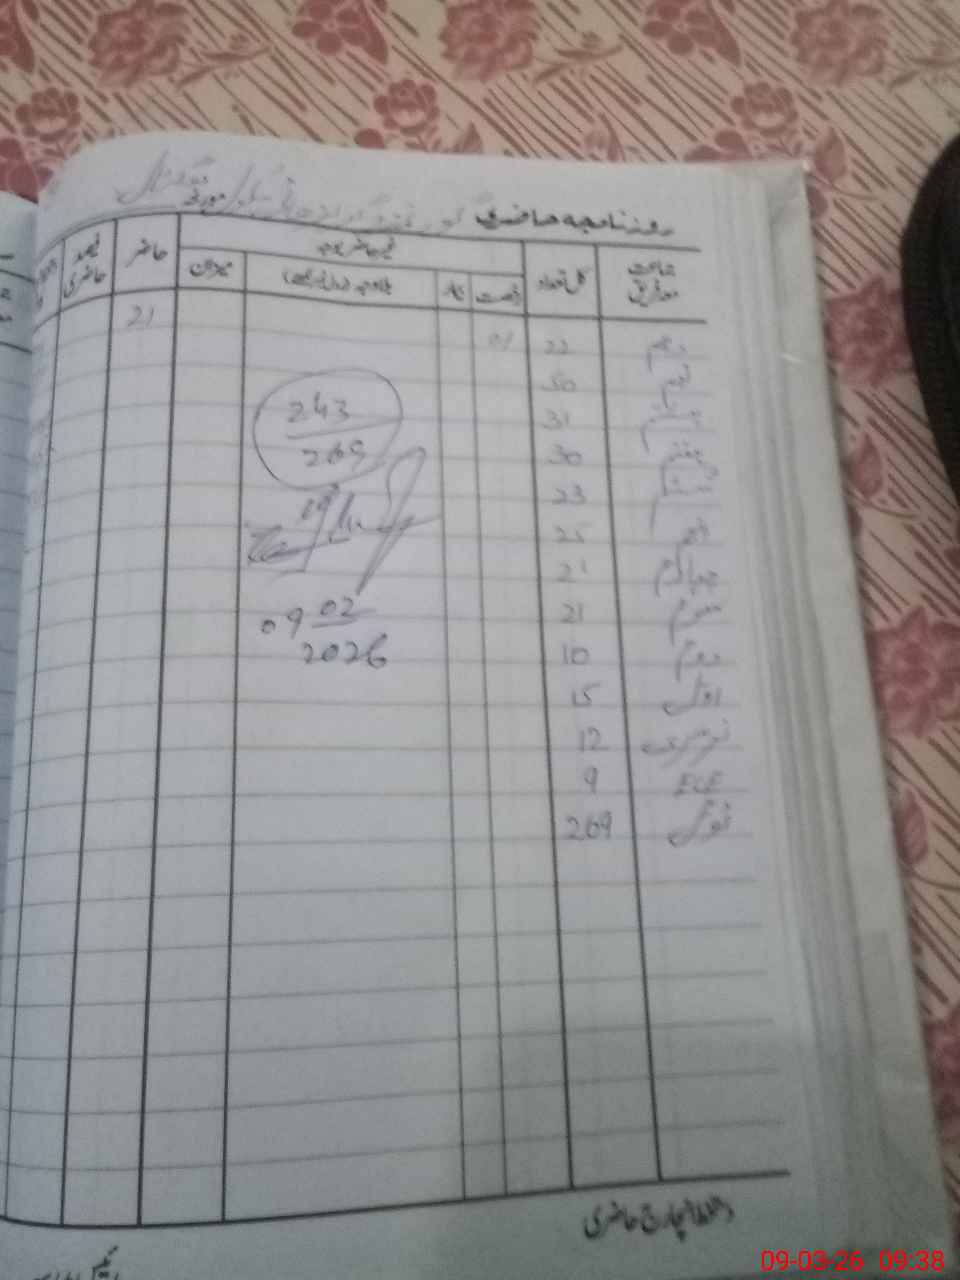 روزنامچہ حاضری
جماعت معہ فریق کل تعداد غیر حاضر بوجہ حاضر فیصد حاضری
رخصت بیمار بلاوجہ میزان
دہم 22 01 21
نہم 50
ہشتم 31
ہفتم 30
ششم 23
پنجم 25
چہارم 21
سوم 21
دوم 10
اول 15
نرسری 12
ECE 9
ٹوٹل 269
243
269
09 02
2026
دستخط انچارج حاضری
09-03-26 09:38